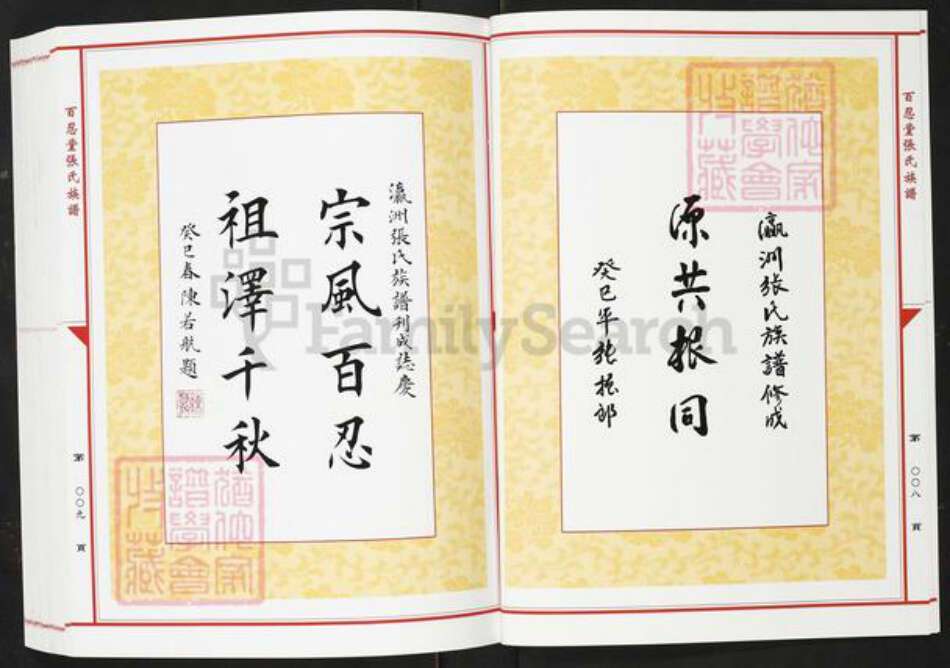 百忍堂張氏族譜
瀛洲張氏族譜修成
源共根同
癸巳年張振郎
第 〇〇八 頁
百忍堂張氏族譜
瀛洲張氏族譜刊成誌慶
宗風百忍
祖澤千秋
癸巳春陳若航題
第 〇〇九 頁
譜學會
FamilySearch